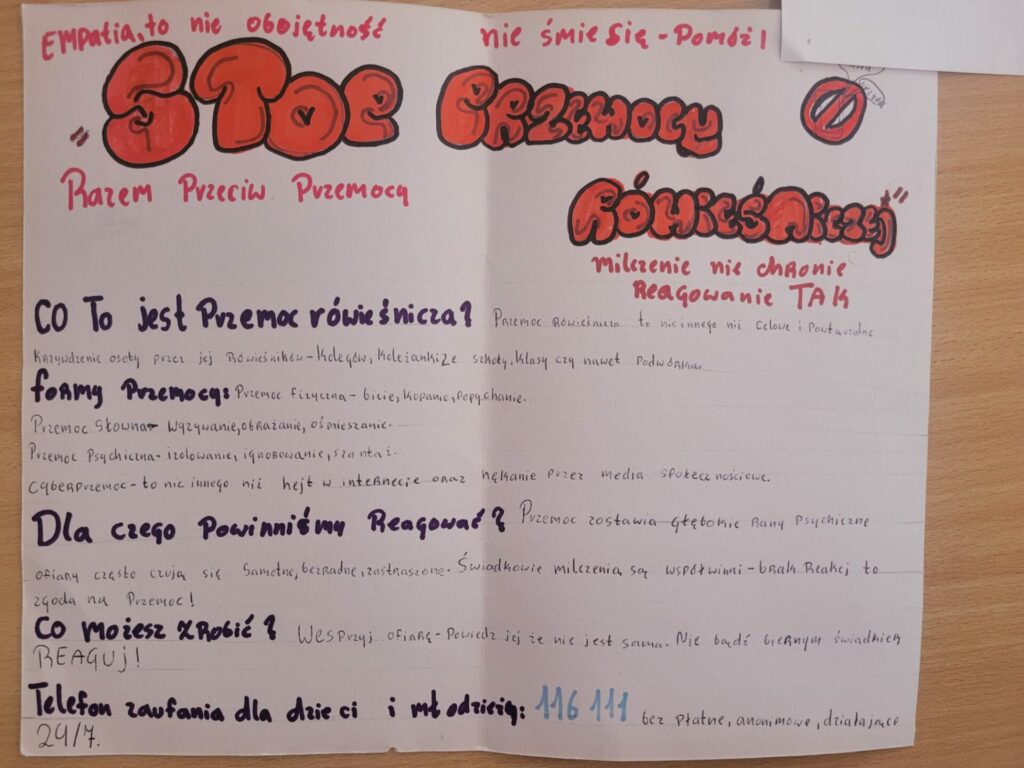 EMPatia, to nie obojętność
nie śmie Się - Pomóż!
"STOP PRZEMOCY
RÓWIEŚNICZEJ"
Razem Przeciw Przemocy
milczenie nie chRonie
Reagowanie TAK
CO To jest Przemoc rówieśnicza? Przemoc Rówieśnicza to nic innego niż Celowe i Powtarzalne
krzywdzenie osoby przez jej Rówieśników - kolegów, koleżanki ze szkoły, klasy czy nawet Podwórka.
foRmy Przemocy: Przemoc fizyczna - bicie, kopanie, popychanie.
Przemoc Słowna - wyzywanie, obrażanie, ośmieszanie.
Przemoc Psychiczna - izolowanie, ignorowanie, szantaż.
cyberprzemoc - to nic innego niż hejt w internecie oraz nękanie przez media społecznościowe.
Dla czego Powinniśmy Reagować? Przemoc zostawia głębokie Rany Psychiczne
ofiary często czują się Samotne, bezradne, zastraszone. Świadkowie milczenia są współwinni - brak Reakcj to
zgoda na Przemoc!
Co możesz zRobić? Wesprzyj ofiarę - Powiedz jej że nie jest sama. Nie bądź biernym świadkiem
REAGUj!
Telefon zaufania dla dzieci i młodzieży: 116 111 bez płatne, anonimowe, działające
24/7.